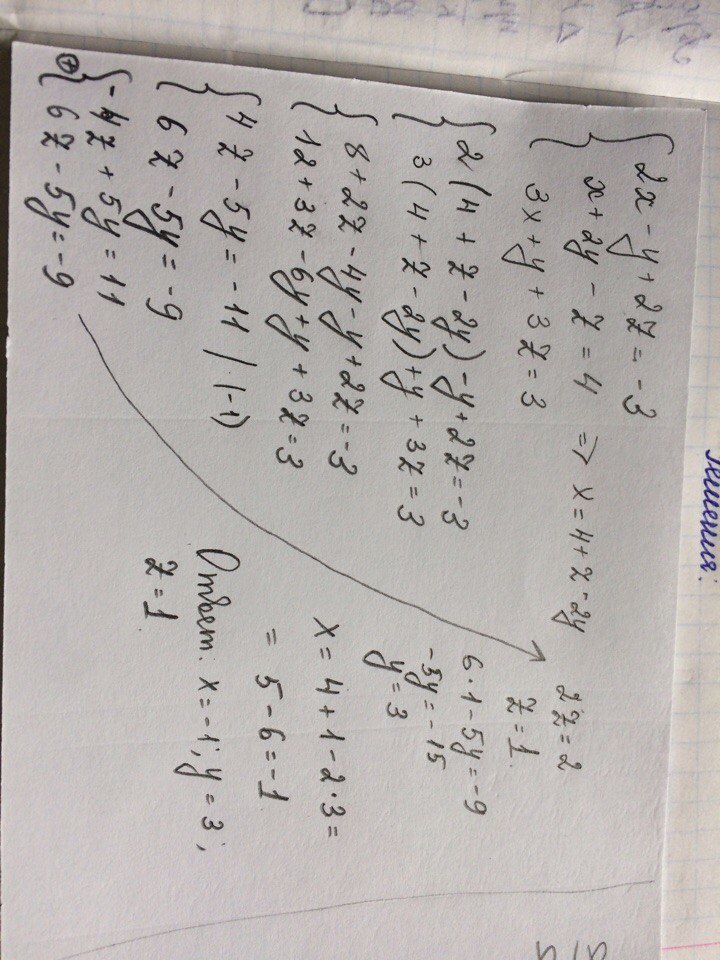 решения:
{ 2x - y + 2z = -3
x + 2y - z = 4 => x = 4 + z - 2y
3x + y + 3z = 3
{ 2(4 + z - 2y) - y + 2z = -3
3(4 + z - 2y) + y + 3z = 3
{ 8 + 2z - 4y - y + 2z = -3
12 + 3z - 6y + y + 3z = 3
{ 4z - 5y = -11 | (-1)
6z - 5y = -9
⊕ { -4z + 5y = 11
6z - 5y = -9
2z = 2
z = 1.
6·1 - 5y = -9
-5y = -15
y = 3
x = 4 + 1 - 2·3 =
= 5 - 6 = -1
Ответ: x = -1; y = 3;
z = 1.